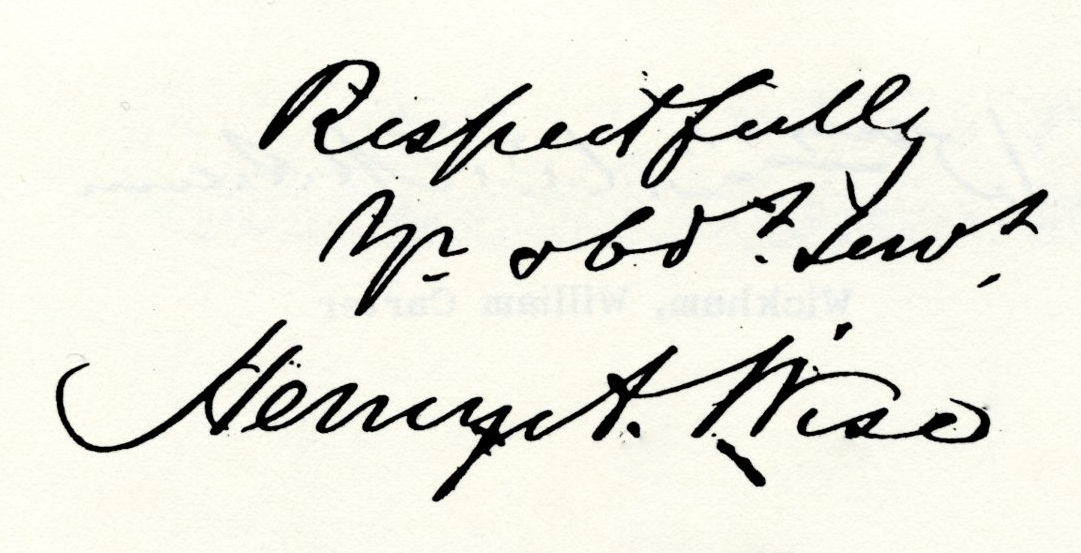 Respectfully
Yr. obdt. Servt.
Henry A. Wise
Wickham, William Carter